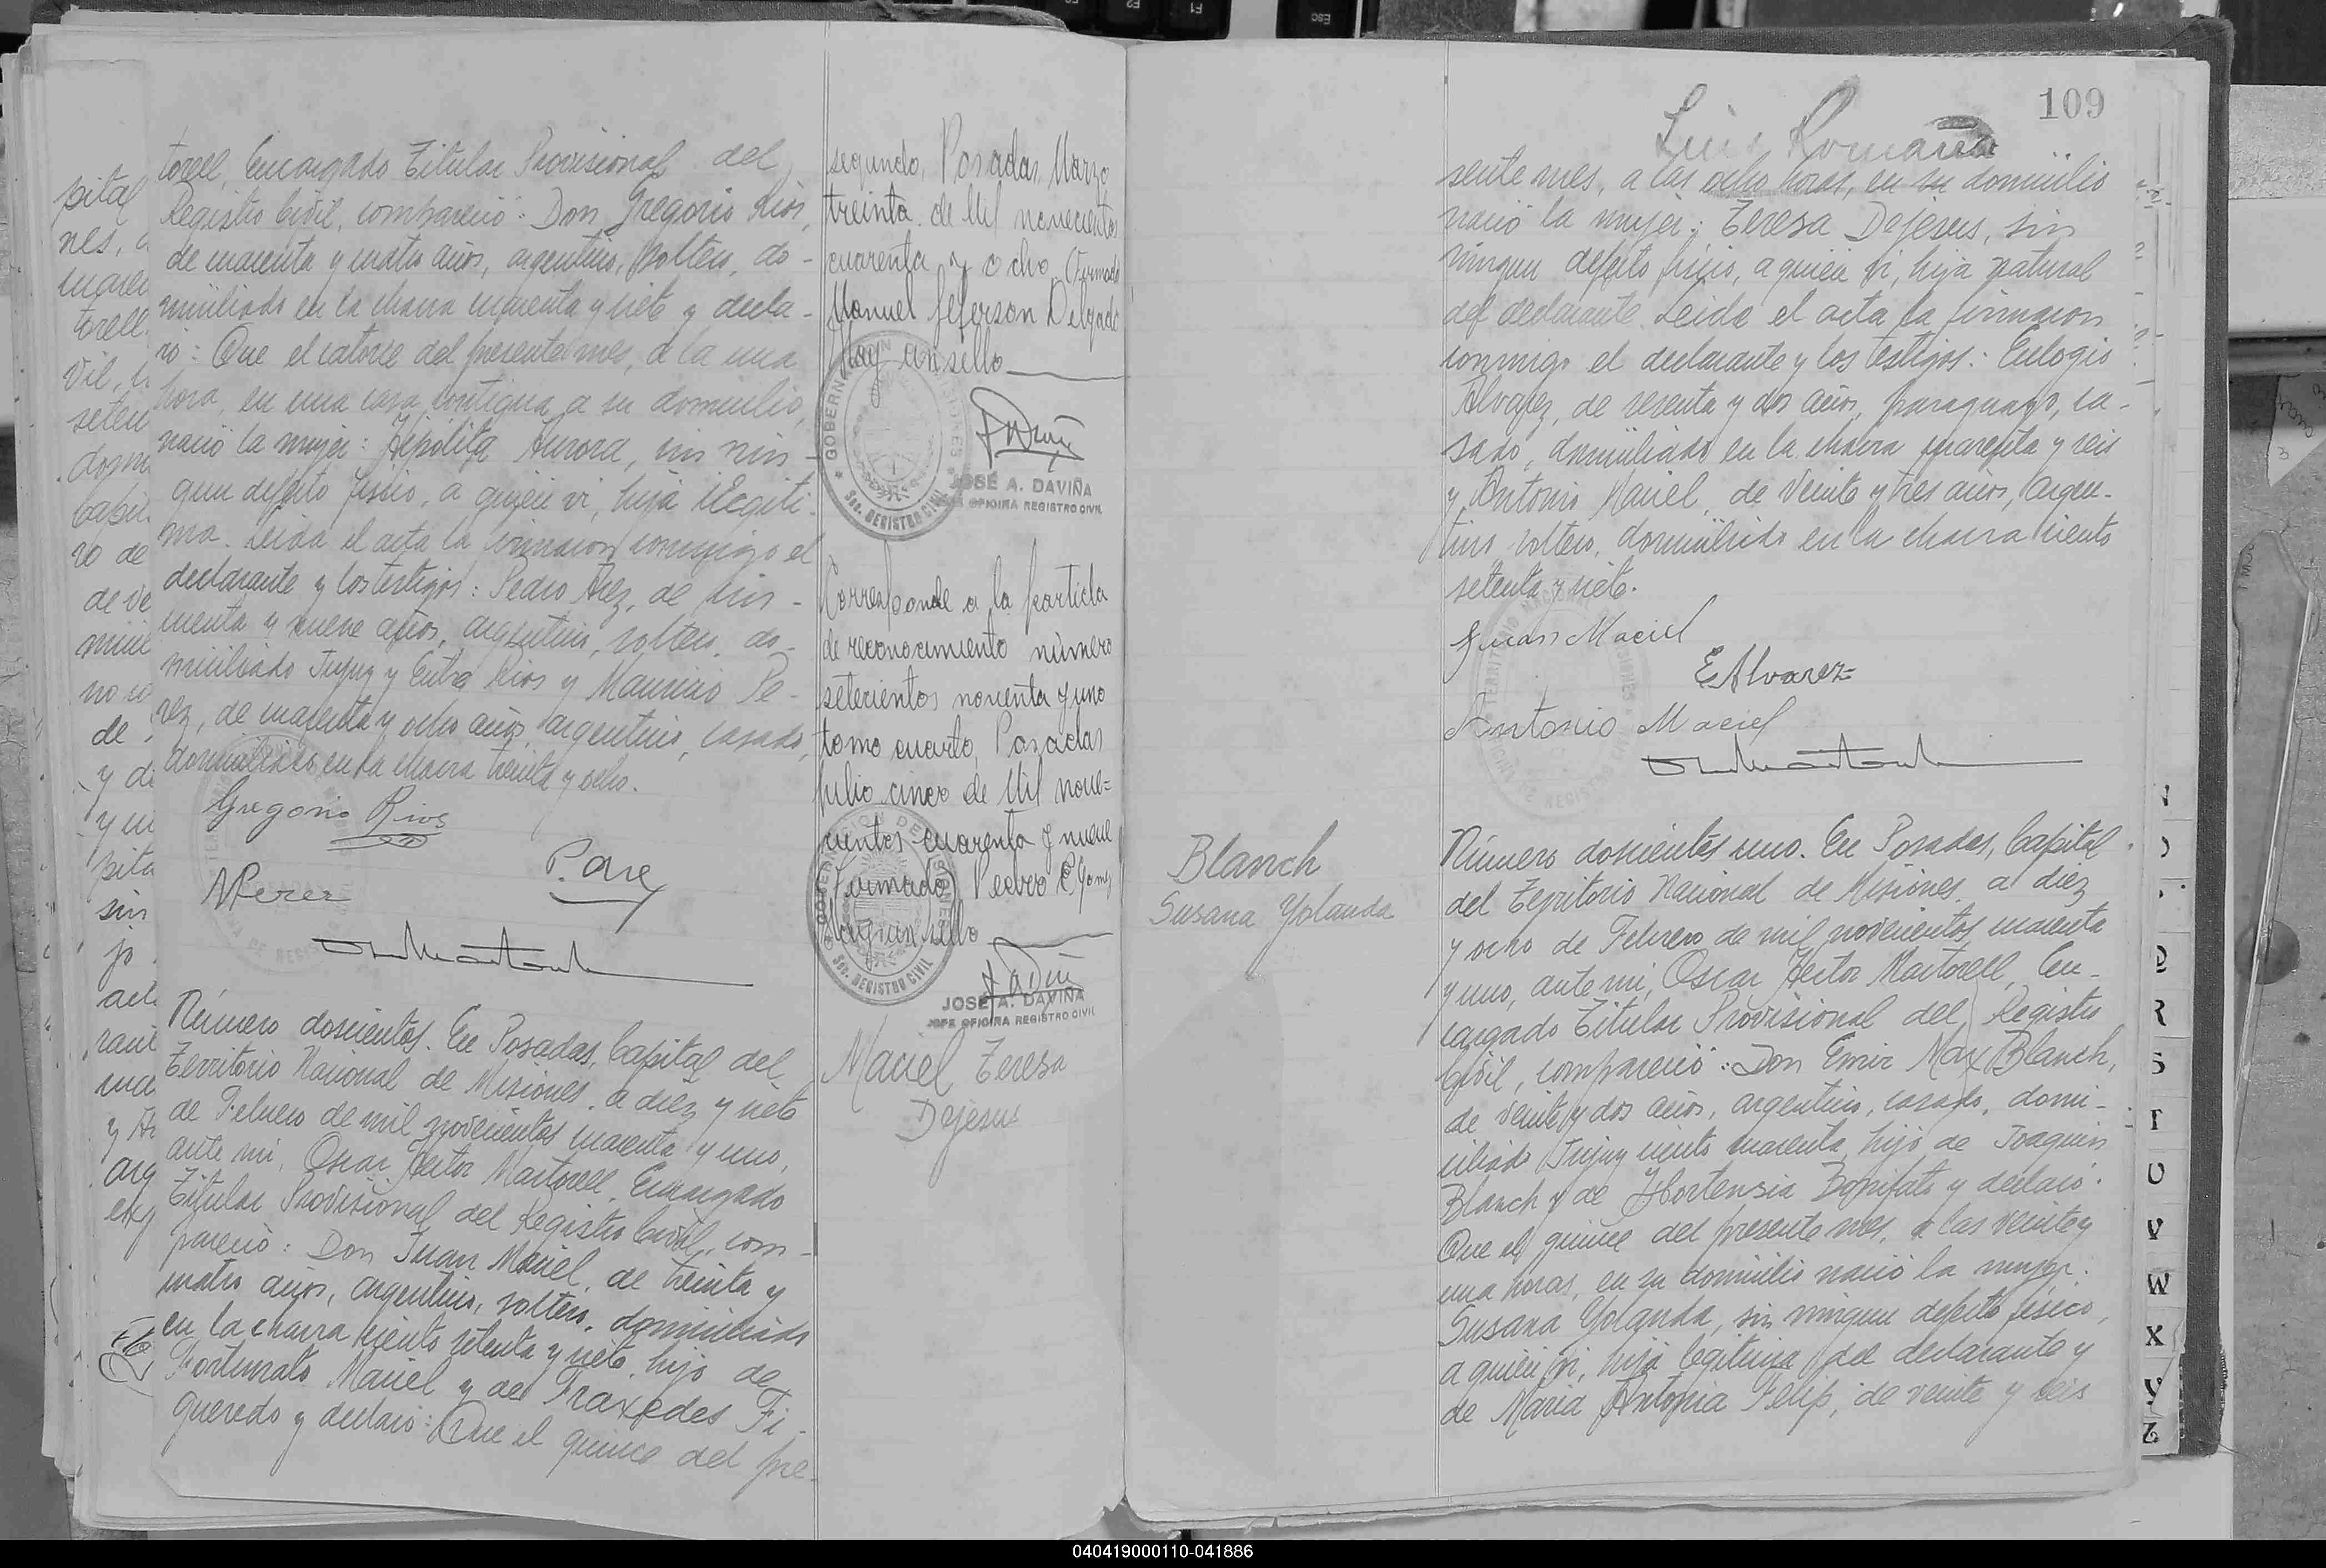 torell, Encargado Titular Provisional del
Registro Civil, compareció: Don Gregorio Rios,
de cuarenta y cuatro años, argentino, soltero, do-
miciliado en la chacra cuarenta y siete y decla-
ró: Que el catorce del presente mes, a la una
hora, en una casa contigua a su domicilio,
nació la mujer: Hipólita Aurora, sin nin-
gun defecto fisico, a quien vi, hija ilegiti-
ma. Leida el acta la firmaron conmigo el
declarante y los testigos: Pedro Arez, de cin-
cuenta y nueve años, argentino, soltero, do-
miciliado Jujuy y Entre Rios y Mauricio Pe-
rez, de cuarenta y ocho años, argentino, casado,
domiciliado en la chacra treinta y ocho.
Gregorio Rios
MPerez
Número doscientos. En Posadas, Capital del
Territorio Nacional de Misiones, a diez y siete
de Febrero de mil novecientos cuarenta y uno,
ante mi, Oscar Hector Martorell, Encargado
Titular Provisional del Registro Civil, com-
pareció: Don Juan Maciel, de treinta y
cuatro años, argentino, soltero, domiciliado
en la chacra ciento setenta y siete, hijo de
Fortunato Maciel y de Praxedes Fi-
gueredo y declaró: Que el quince del pre-
segundo, Posadas, Marzo
treinta de Mil novecientos
cuarenta y ocho (Firmado
Manuel Jeferson Delgado
Hay un sello
JOSÉ A. DAVIÑA
JEFE OFICINA REGISTRO CIVIL
Corresponde a la partida
de reconocimiento número
setecientos noventa y uno
tomo cuarto, Posadas
Julio cinco de Mil nove=
cientos cuarenta y nueve
(Firmado) Pedro E.
Hay un sello
JOSÉ A. DAVIÑA
JEFE OFICINA REGISTRO CIVIL
Maciel, Teresa
Dejesus
109
Luis Romaña
sente mes, a las ocho horas, en su domicilio
nació la mujer: Teresa Dejesus, sin
ningun defecto fisico, a quien vi, hija natural
del declarante. Leida el acta la firmaron
conmigo el declarante y los testigos: Eulogio
Alvarez, de sesenta y dos años, paraguayo, ca-
sado, domiciliado en la chacra cuarenta y seis
y Antonio Maciel, de veinte y tres años, argen-
tino, soltero, domiciliado en la chacra ciento
setenta y siete.
Juan Maciel
EAlvarez
Antonio Maciel
Blanch
Susana Yolanda
Número doscientos uno. En Posadas, Capital
del Territorio Nacional de Misiones, a diez
y ocho de Febrero de mil novecientos cuarenta
y uno, ante mi, Oscar Hector Martorell, En-
cargado Titular Provisional del Registro
Civil, compareció: Don Emir Max Blanch,
de veinte y dos años, argentino, casado, domi-
ciliado Jujuy ciento cuarenta, hijo de Joaquin
Blanch y de Hortensia Bonifato y declaró:
Que el quince del presente mes, a las veinte y
una horas, en su domicilio nació la mujer:
Susana Yolanda, sin ningun defecto fisico,
a quien vi, hija legitima del declarante y
de Maria Antonia Felip, de veinte y seis
R
S
T
U
V
W
X
Y
Z
040419000110-041886